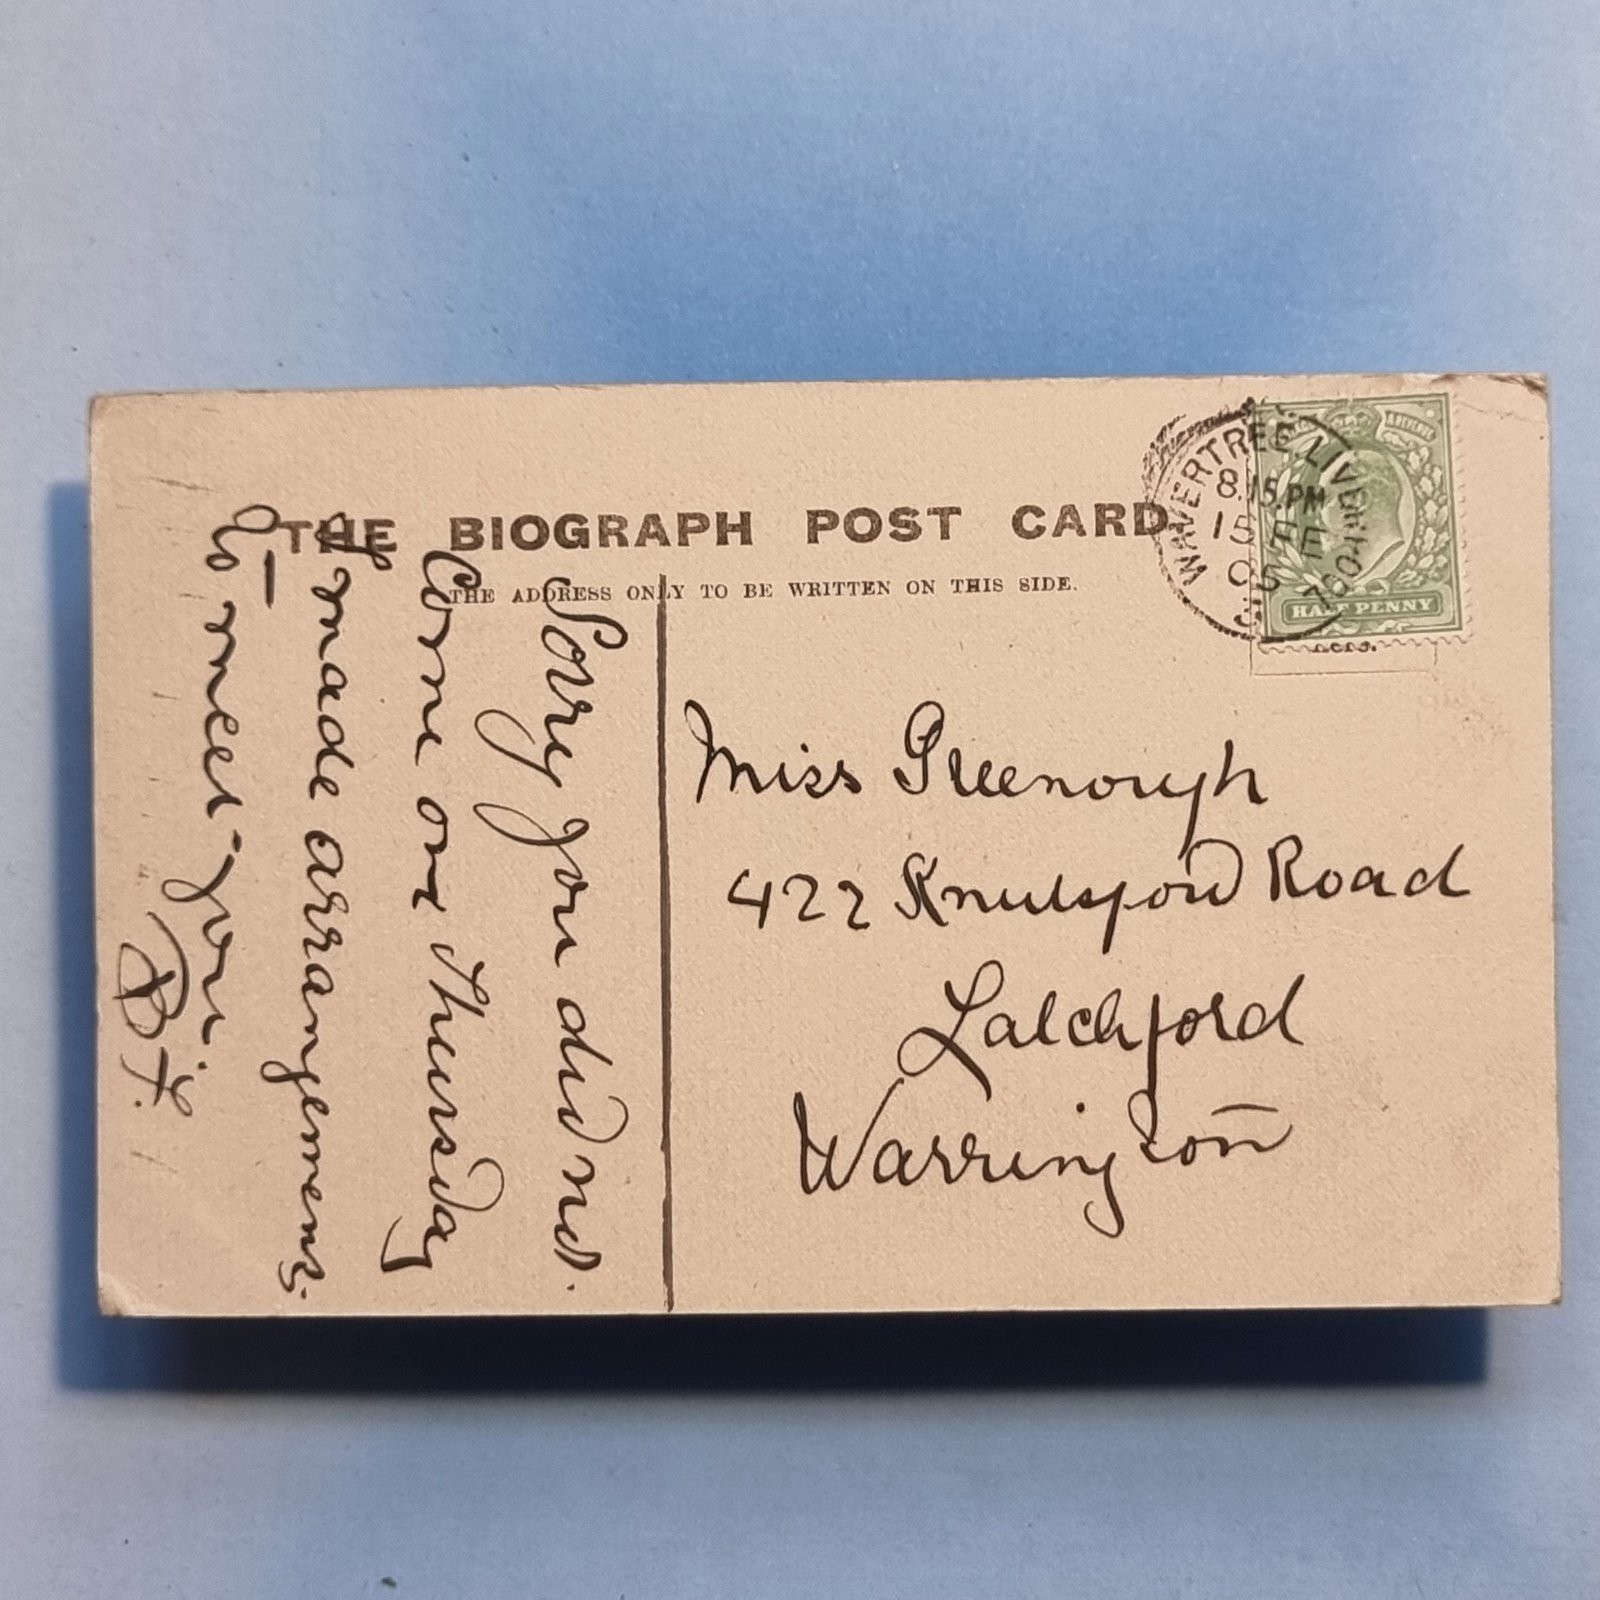 THE BIOGRAPH POST CARD
THE ADDRESS ONLY TO BE WRITTEN ON THIS SIDE.
WAVERTREE. LIVERPOOL
8.15.PM
15
05
HALF PENNY
Miss Greenough
422 Knutsford Road
Latchford
Warrington
Sorry you did not
Come on Thursday
I made arrangements
to meet you